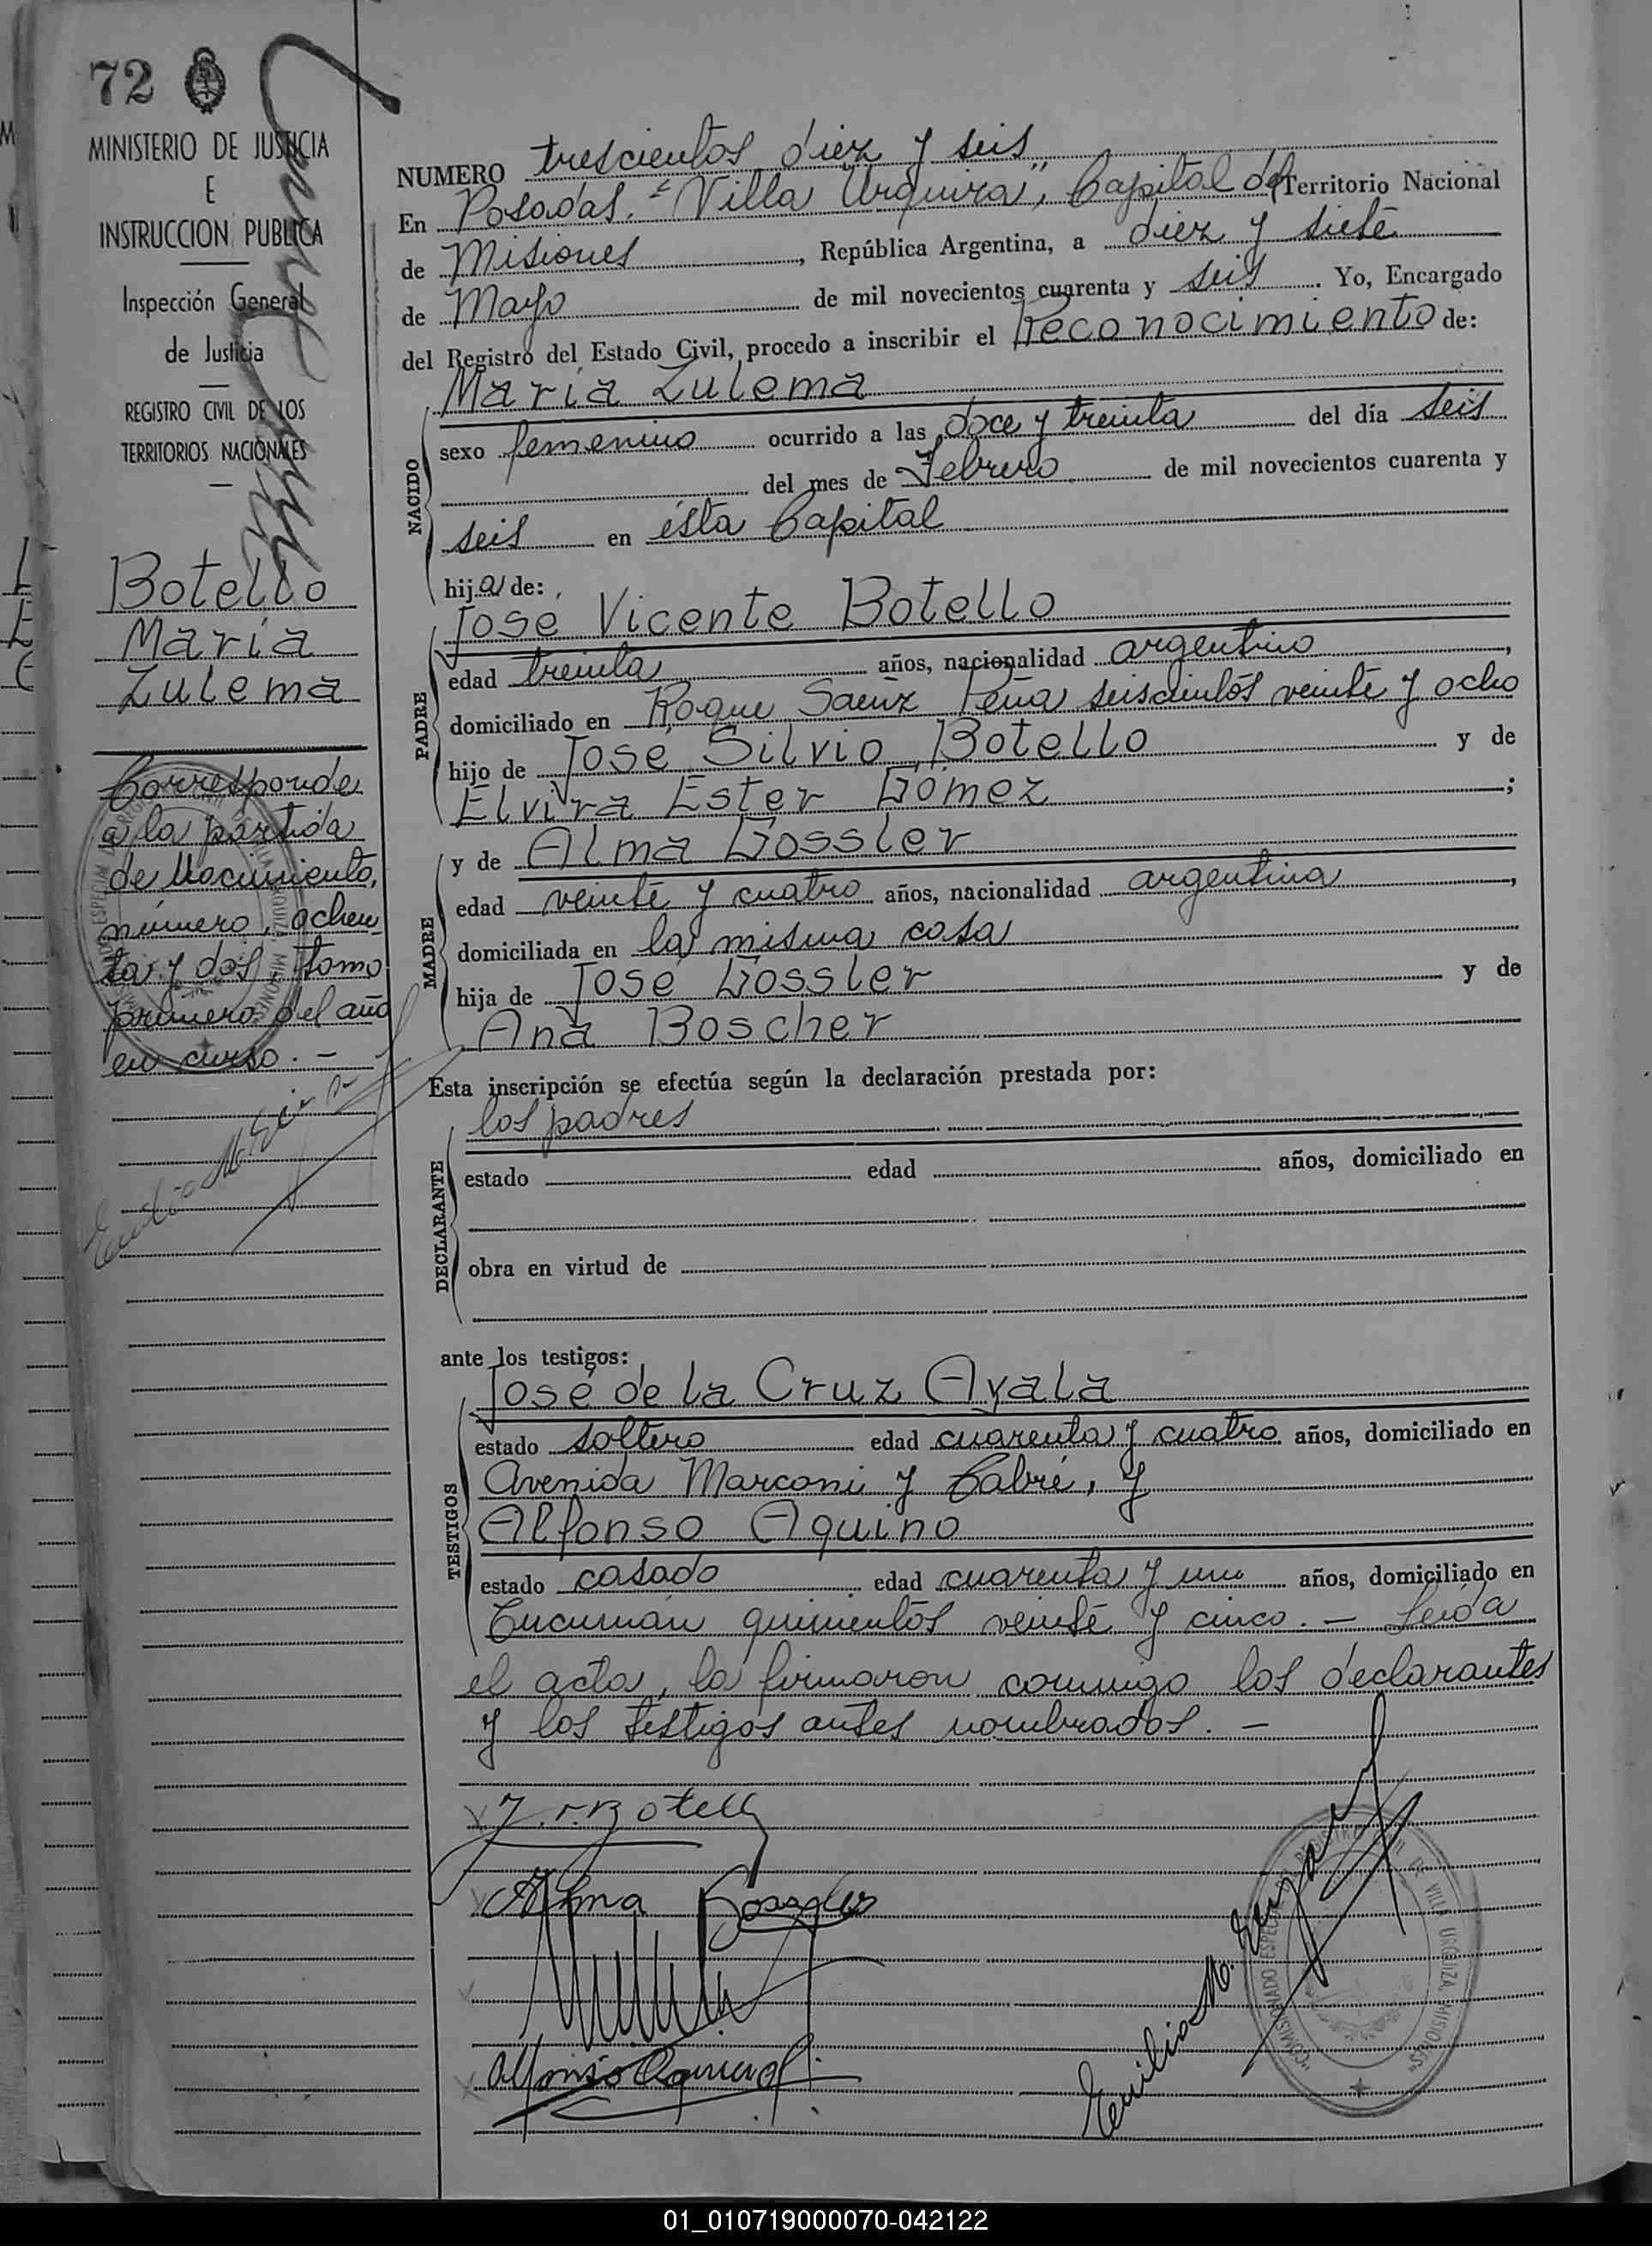 72
MINISTERIO DE JUSTICIA
E
INSTRUCCION PUBLICA
Inspección General
de Justicia
REGISTRO CIVIL DE LOS
TERRITORIOS NACIONALES
Botello
María
Zulema
Corresponde
a la partida
de Nacimiento,
número, ochen
ta y dos, tomo
primero del año
en curso. –
NUMERO trescientos diez y seis
En Posadas, "Villa Urquiza", Capital del Territorio Nacional
de Misiones, República Argentina, a diez y siete
de Mayo de mil novecientos cuarenta y seis. Yo, Encargado
del Registro del Estado Civil, procedo a inscribir el Reconocimiento de:
NACIDO
María Zulema
sexo femenino ocurrido a las doce y treinta del día seis
del mes de Febrero de mil novecientos cuarenta y
seis en ésta Capital
hija de:
PADRE
José Vicente Botello
edad treinta años, nacionalidad argentino,
domiciliado en Roque Saenz Peña seiscientos veinte y ocho
hijo de José Silvio Botello y de
Elvira Ester Gómez;
MADRE
y de Alma Gossler
edad veinte y cuatro años, nacionalidad argentina,
domiciliada en la misma casa
hija de José Gossler y de
Ana Boscher
Esta inscripción se efectúa según la declaración prestada por:
DECLARANTE
los padres
estado edad años, domiciliado en
obra en virtud de
ante los testigos:
TESTIGOS
José de la Cruz Ayala
estado soltero edad cuarenta y cuatro años, domiciliado en
Avenida Marconi y Cabré, y
Alfonso Aquino
estado casado edad cuarenta y un años, domiciliado en
Tucumán quinientos veinte y cinco. – Leída
el acta, la firmaron conmigo los declarantes
y los testigos antes nombrados. –
J. V. Botello
Alma Gossler
Alfonso Aquino
Emilio M.
01_010719000070-042122